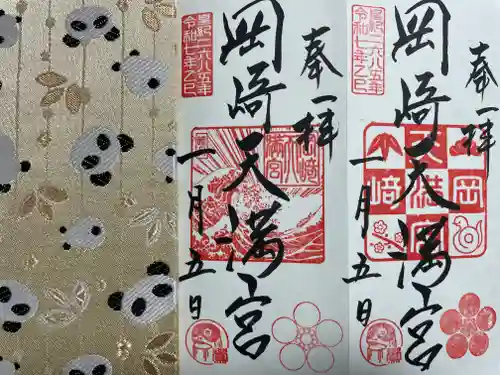 奉拝
岡崎天満宮
一月五日
皇紀二六八五年
令和七年乙巳
岡崎天満宮
奉拝
岡崎天満宮
一月五日
皇紀二六八五年
令和七年乙巳
天満宮
岡崎